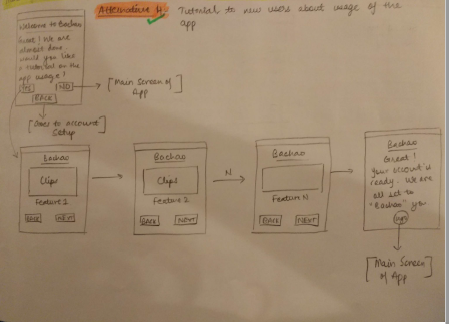 Alternative 4 Tutorial to new users about usage of the
app
Welcome to Bachao
Great! We are
almost done.
Would you like
a tutorial on the
app usage?
NO
BACK
[Main Screen of
App]
[User to account
Setup]
Bachao
Clips
Feature 1
BACK NEXT
Bachao
Clips
Feature 2
BACK NEXT
N
Bachao
Feature N
BACK NEXT
Bachao
Great!
Your account is
ready. We are
all set to
"Bachao" you
[Main Screen
of App]